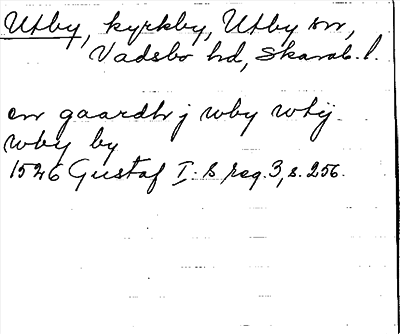 Utby, kyrkby, Utby sn,
Vadsbo hd, Skarab. l.
en gaardh j wby wtij
wby by
1526 Gustaf I:s reg. 3, s. 256.